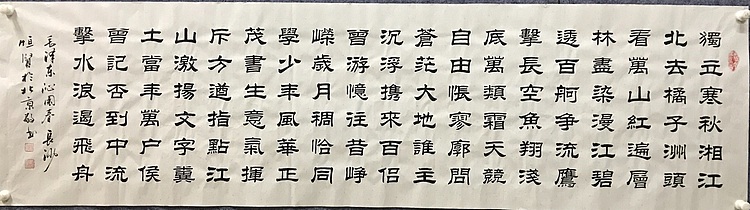 獨立寒秋湘江
北去橘子洲頭
看萬山紅遍層
林盡染漫江碧
透百舸争流鷹
擊長空魚翔淺
底萬類霜天競
自由悵寥廓問
蒼茫大地誰主
沉浮携來百侣
曾游憶往昔崢
嶸歲月稠恰同
學少年風華正
茂書生意氣揮
斥方遒指點江
山激揚文字糞
土當年萬户侯
曾記否到中流
擊水浪遏飛舟
毛泽东沁園春長沙
於北京